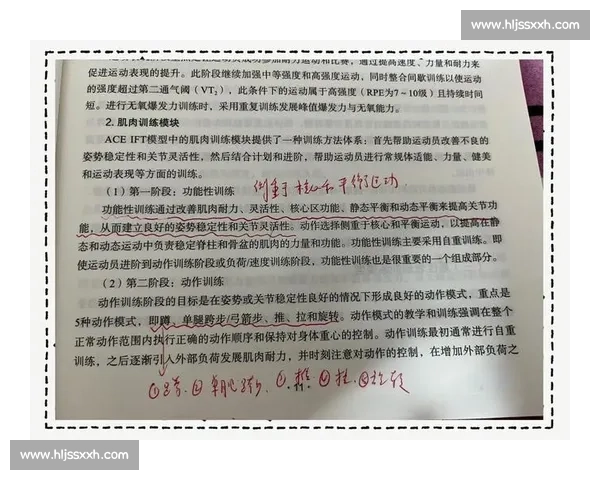 www.hljssxxh.com
促进运动表现的提升。此阶段继续加强中等强度和高强度运动，同时整合间歇训练以使运动
的强度超过第二通气阈（VT₂），此条件下的运动属于高强度（RPE为7～10级）且持续时间
短。进行无氧爆发力训练时，采用重复训练发展峰值爆发力与无氧能力。
2. 肌肉训练模块
ACE IFT模型中的肌肉训练模块提供了一种训练方法体系：首先帮助运动员改善不良的
姿势稳定性和关节灵活性，然后结合计划和进阶，帮助运动员进行常规体适能、力量、健美
和运动表现等方面的训练。
（1）第一阶段：功能性训练
侧重于核心和平衡运动
功能性训练通过改善肌肉耐力、灵活性、核心区功能、静态平衡和动态平衡来提高关节功
能，从而建立良好的姿势稳定性和关节灵活性。动作选择侧重于核心和平衡运动，以提高在静
态和动态运动中负责稳定脊柱和骨盆的肌肉的力量和功能。功能性训练主要采用自重训练。即
使运动员进阶到动作训练阶段或负荷/速度训练阶段，功能性训练也是很重要的一个组成部分。
（2）第二阶段：动作训练
动作训练阶段的目标是在姿势或关节稳定性良好的情况下形成良好的动作模式，重点是
5种动作模式，即蹲、单腿跨步/弓箭步、推、拉和旋转。动作模式的教学和训练强调在整个
正常动作范围内执行正确的动作顺序和保持对身体重心的控制。动作训练最初通常进行自重
训练，之后逐渐引入外部负荷发展肌肉耐力，并时刻注意对动作的控制，在增加外部负荷之
①蹲 ②单腿跨步 推 ④拉 ⑤旋转
www.hljssxxh.com